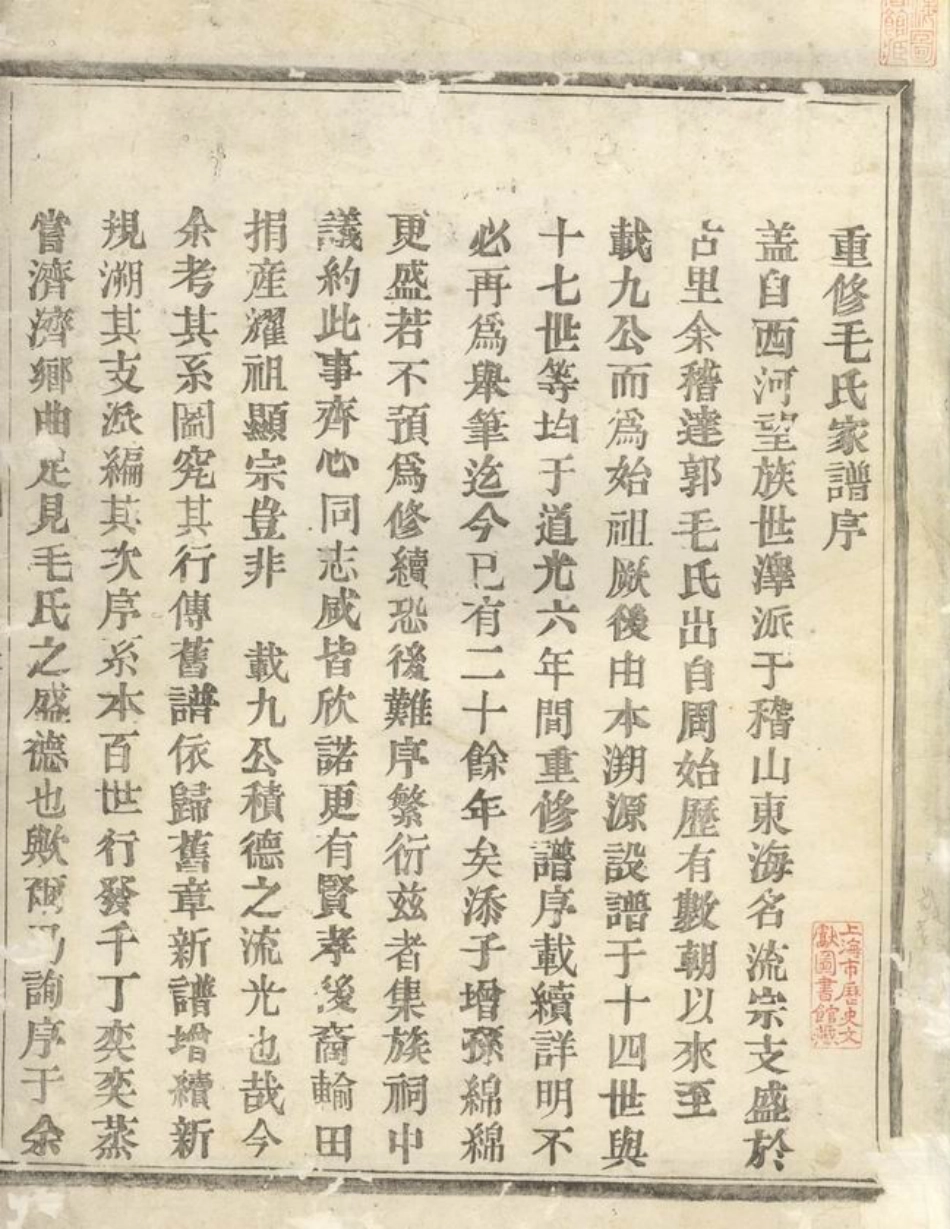 重修毛氏家譜序
盖自西河望族世澤派于稽山東海名流宗支盛於
古里余稽達郭毛氏出自周始歷有數朝以來至
載九公而爲始祖厥後由本溯源設譜于十四世與
十七世等均于道光六年間重修譜序載續詳明不
必再爲舉筆迄今已有二十餘年矣添子增孫綿綿
更盛若不預爲修續恐後難序繁衍兹者集族祠中
議約此事齊心同志咸皆欣諾更有賢孝後裔輸田
捐產耀祖顯宗豈非　載九公積德之流光也哉今
余考其系圖究其行傳舊譜依歸舊章新譜增續新
規溯其支派編其次序系本百世行發千丁奕奕蒸
嘗濟濟鄉曲足見毛氏之盛德也歟爾乃詢序于余
上海市歷史文
獻圖書館藏